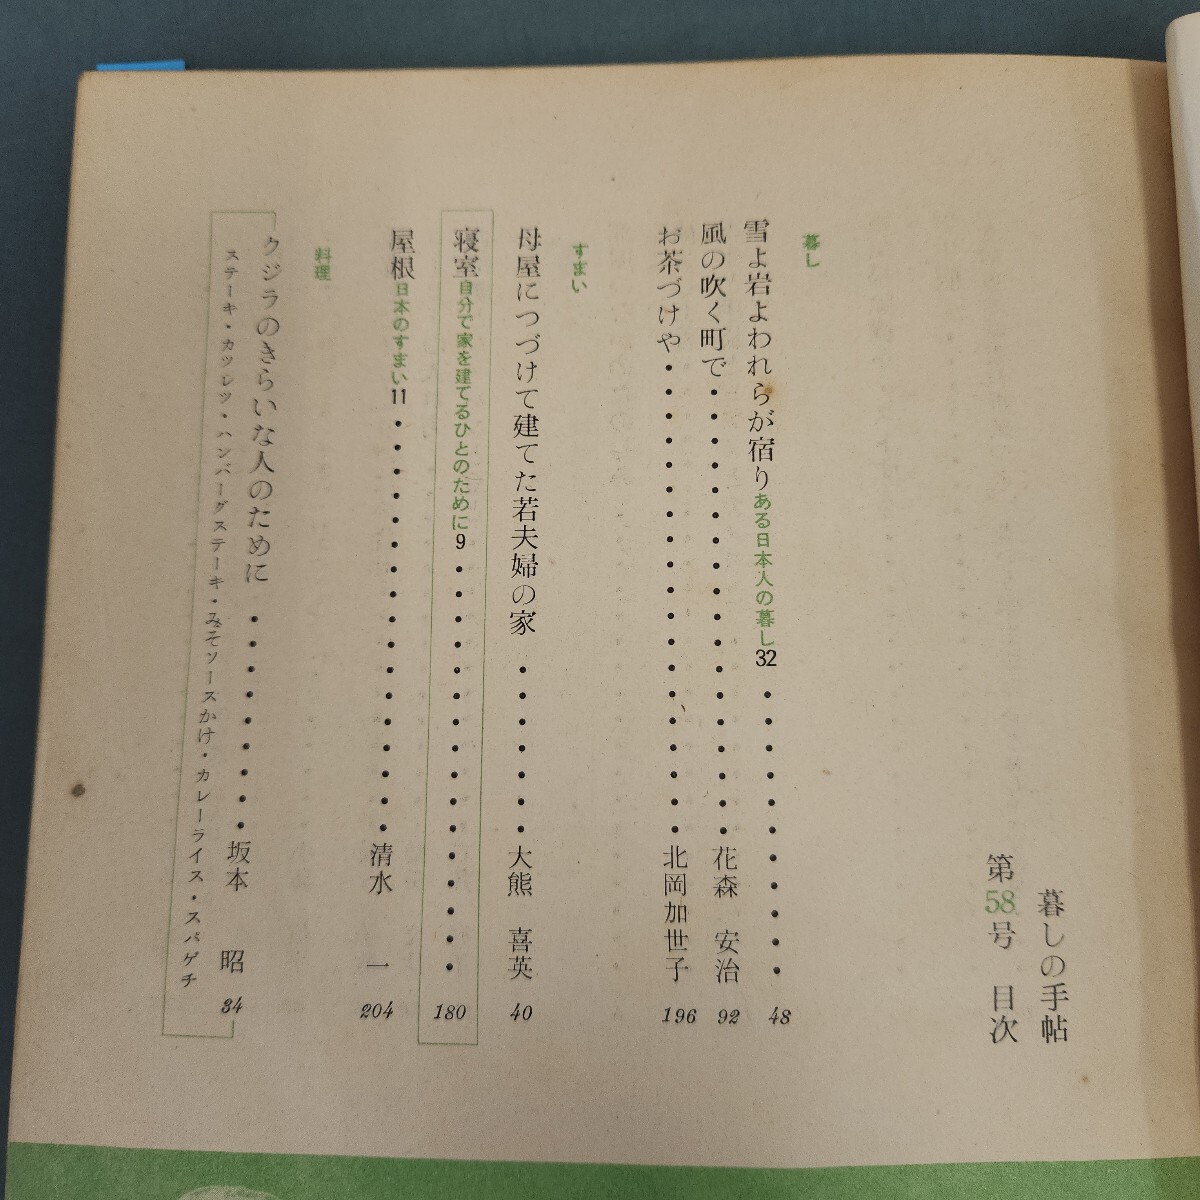 暮しの手帖
第58号 目次
暮し
雪よ岩よわれらが宿り ある日本人の暮し32 48
風の吹く町で 花森 安治 92
お茶づけや 北岡加世子 196
すまい
母屋につづけて建てた若夫婦の家 大熊 喜英 40
寝室 自分で家を建てるひとのために9 180
屋根 日本のすまい11 清水 一 204
料理
クジラのきらいな人のために 坂本 昭 34
ステーキ・カツレツ・ハンバーグステーキ・みそソースかけ・カレーライス・スパゲチ